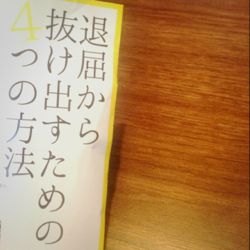 退屈から
抜け出すための
4つの方法